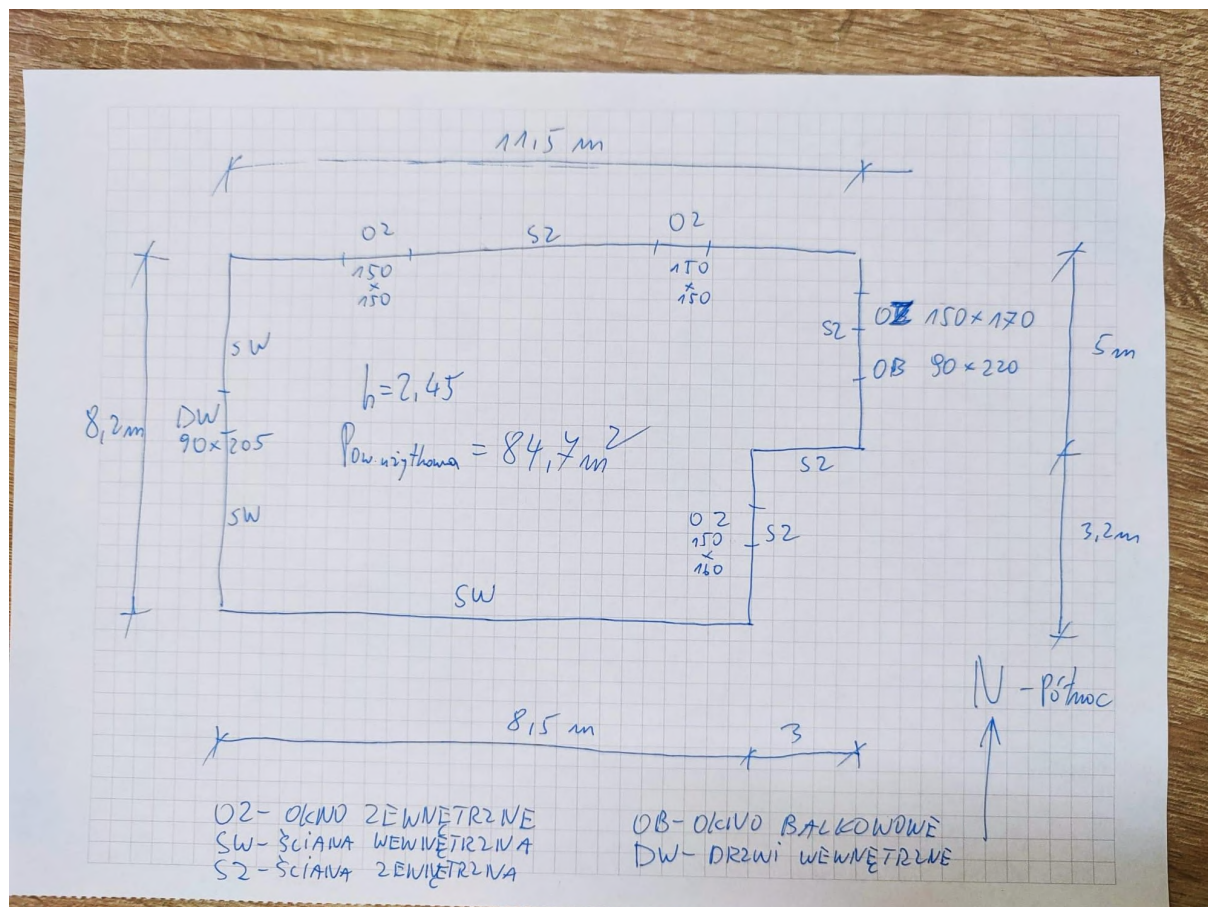 11,5 m
OZ
SZ
OZ
150
×
150
150
×
150
SZ
OZ 150×170
OB 90×220
5m
SW
h=2,45
8,2m
DW
90×205
Pow. użytkowa = 84,7m²
SZ
SW
OZ
150
×
160
SZ
3,2m
SW
N - Północ
8,5 m
3
OZ- OKNO ZEWNĘTRZNE
SW- ŚCIANA WEWNĘTRZNA
SZ- ŚCIANA ZEWNĘTRZNA
OB- OKNO BALKONOWE
DW- DRZWI WEWNĘTRZNE